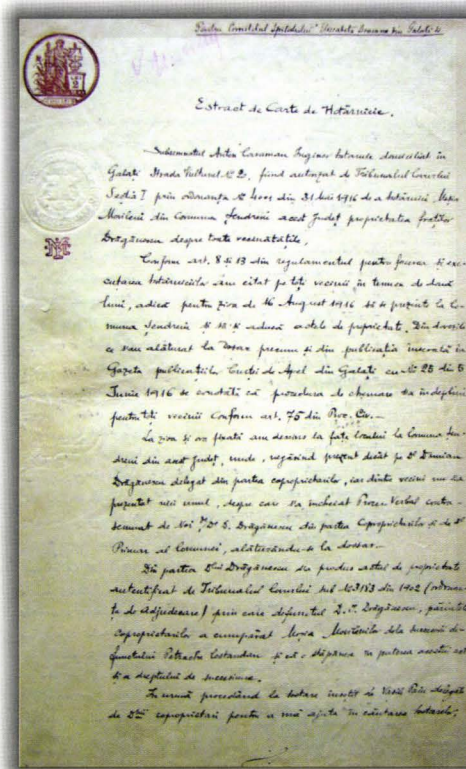 Pentru Comitetul Spitalului Elisabeta Doamna din Galati
Estract de Carte de Hotărnicie.
Subsemnatul Anton Caraman Inginer hotarnic domiciliat în
Galați Strada No 2, fiind autorizat de Tribunalul Covurlui
Secția I prin ordonanța No 4001 din 31 Mai 1916 de a hotărnici Moșia
Movilenii din Comuna Șendreni acest Județ proprietatea fraților
Drăgănescu despre toate vecinătățile,
Conform art. 8 și 13 din regulamentul pentru facerea și exe-
cutarea hotărniciilor am citat pe toți vecinii în termen de două
luni, adică pentru ziua de 16 August 1916 să se prezinte la Co-
muna Șendreni și să-și aducă actele de proprietate. Din dovezile
ce s'au alăturat la dosar precum și din publicația inserată în
Gazeta publicațiilor Curței de Apel din Galați cu No 25 din 5
Iunie 1916 se constată că procedura de chemare s'a îndeplinit
pentru toți vecinii Conform art. 75 din Proc. Civ.—
La ziua și ora fixată am descins la fața locului la Comuna Șen-
dreni din acest Județ, unde, regăsind prezent decât pe Dl Damian
Drăgănescu delegat din partea coproprietarilor, iar dintre vecini nu s'a
prezentat nici unul, despre care s'a încheiat Proces Verbal contra-
semnat de Noi, Dl D. Drăgănescu din partea Coproprietarilor și de Dl
Primar al Comunei, alăturându-se la dossar.—
Din partea Dlui Drăgănescu s'a produs actul de proprietate
autentificat de Tribunalul Covurlui sub No 3183 din 1902 (ordonan-
ța de Adjudecare) prin care defunctul D. P. Drăgănescu, părintele
Coproprietarilor a cumpărat Moșia Movilenilor dela succesorii de-
functului Petrache Costandan și că o stăpânea în puterea acestui act
și a dreptului de succesiune.
În urmă procedând la hotare însoțit de Vasile delegat
de Dnii coproprietari pentru a mă ajuta în căutarea hotarelor,